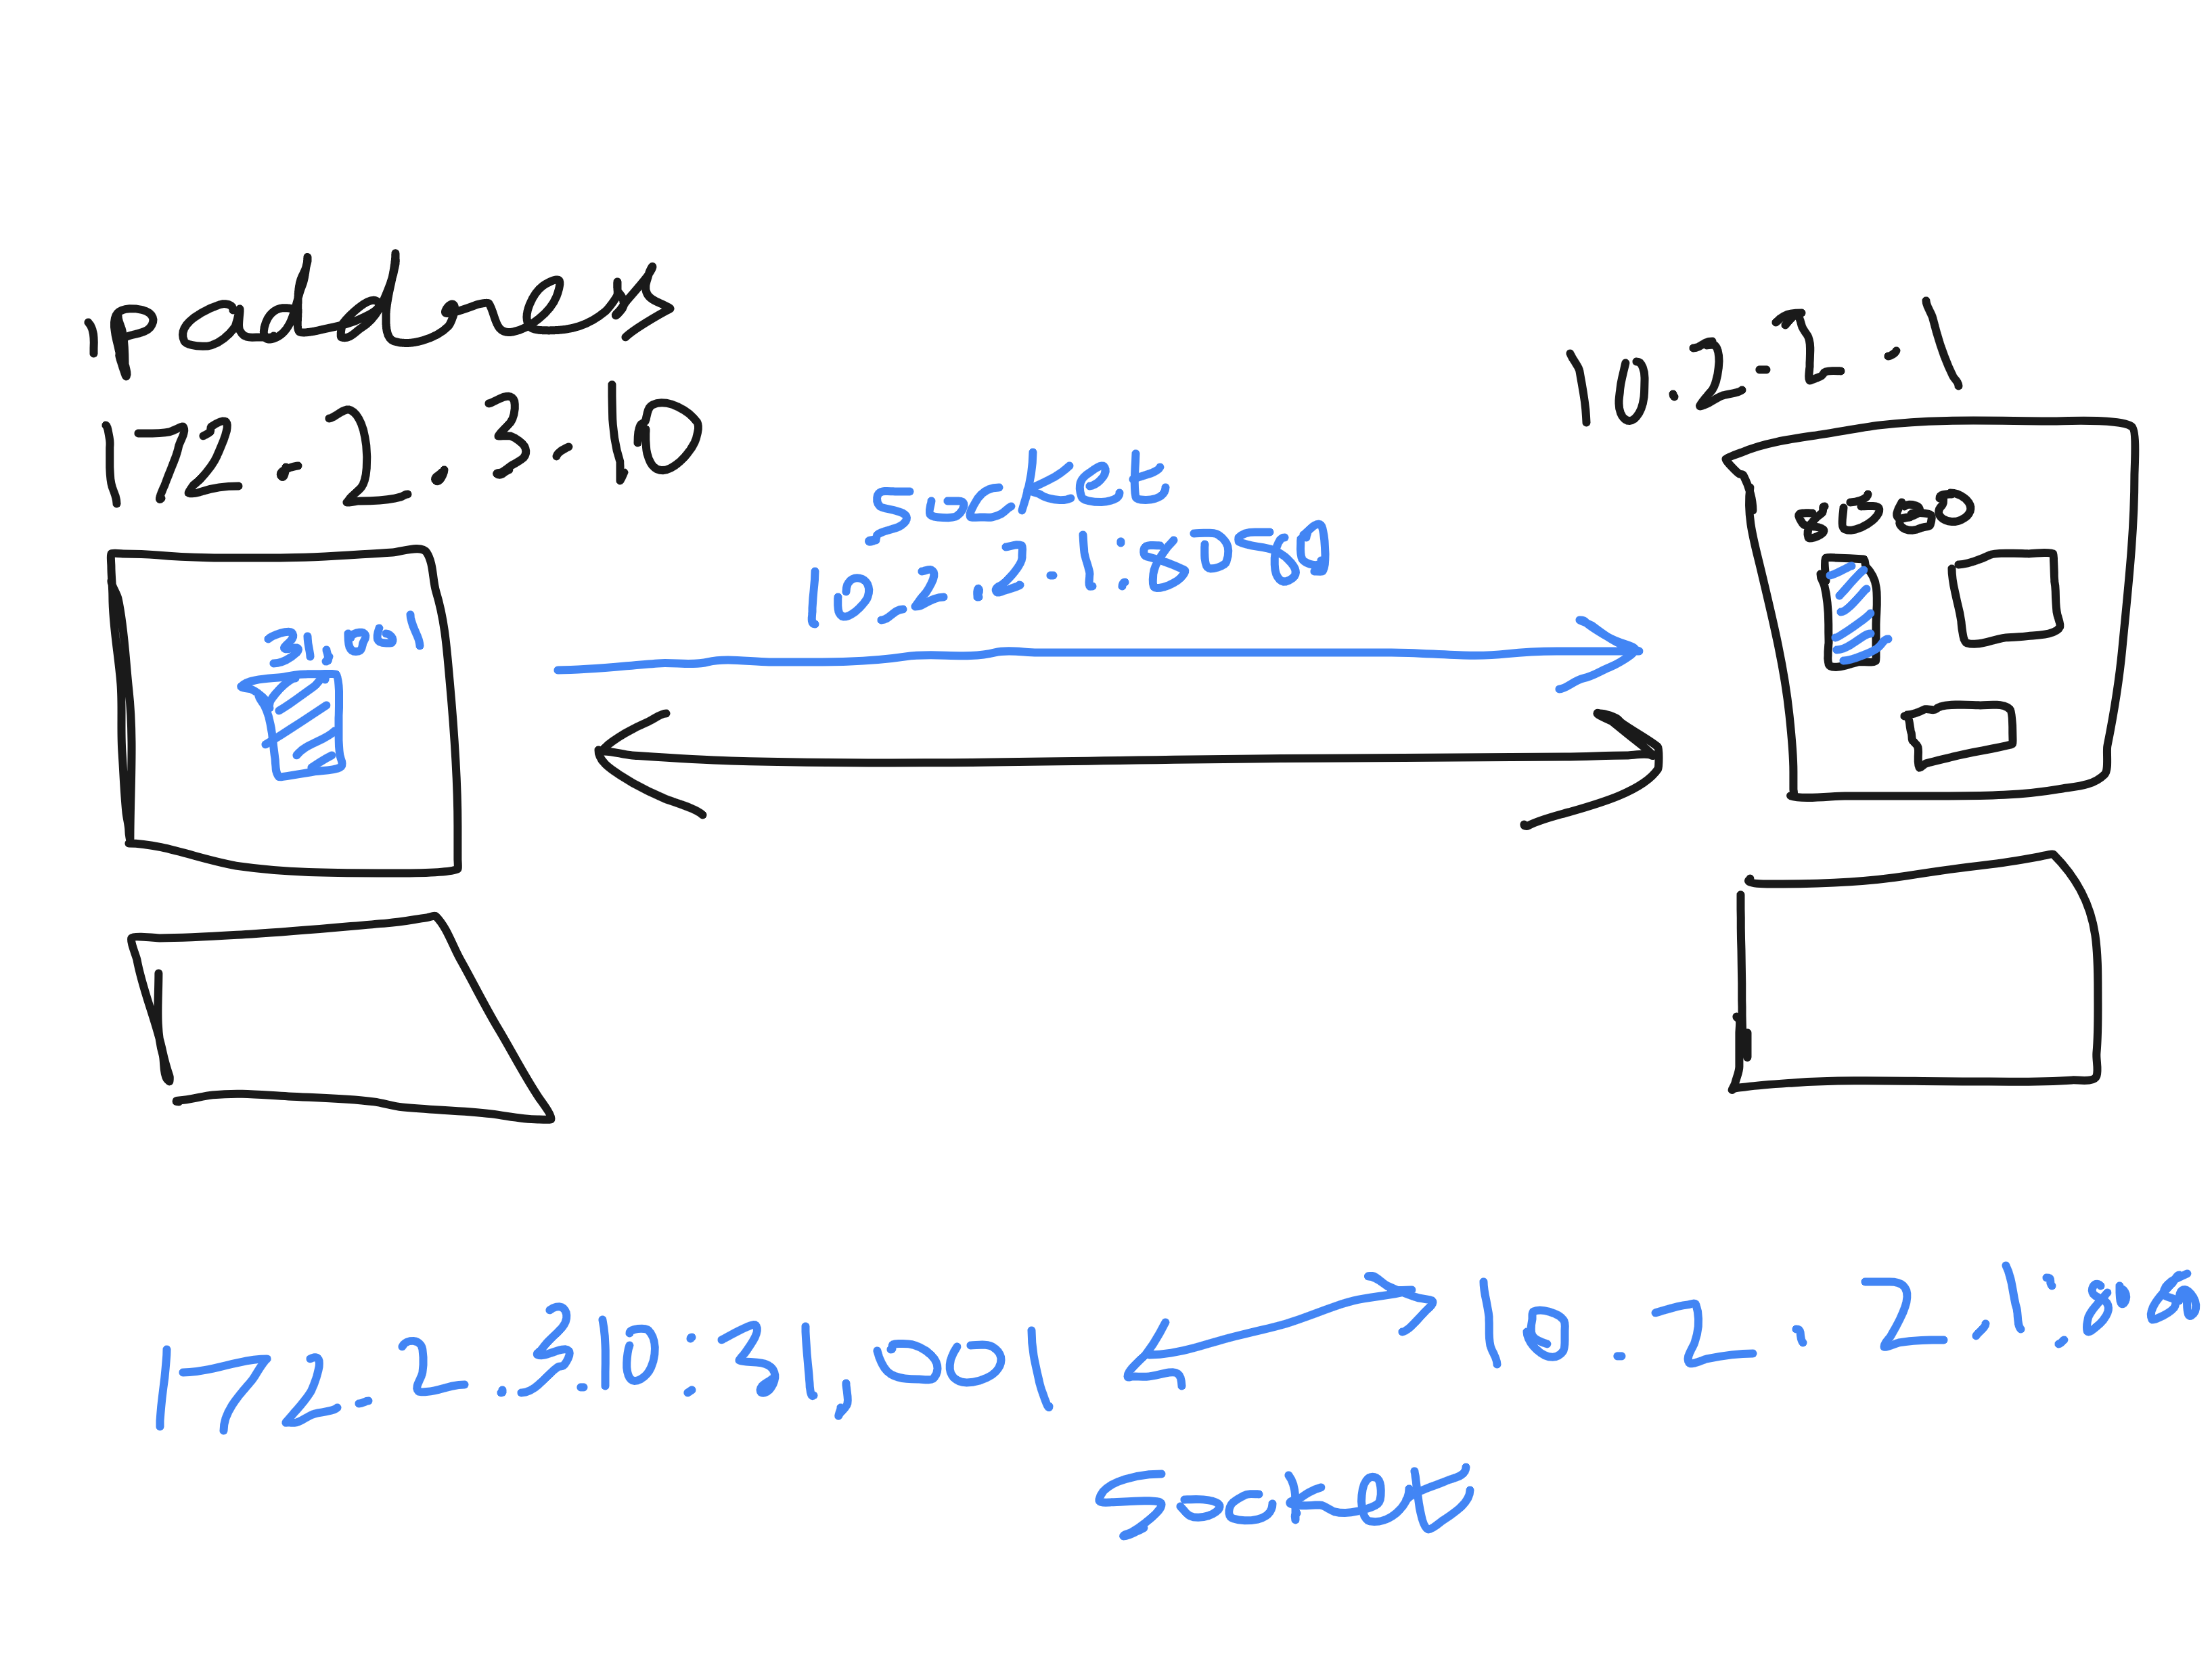 ip address
172.2.3.10
10.2.2.1
socket
10.2.2.1:8080
8080
31,001
172.2.3.10:31,001
10.2.2.1:808
socket